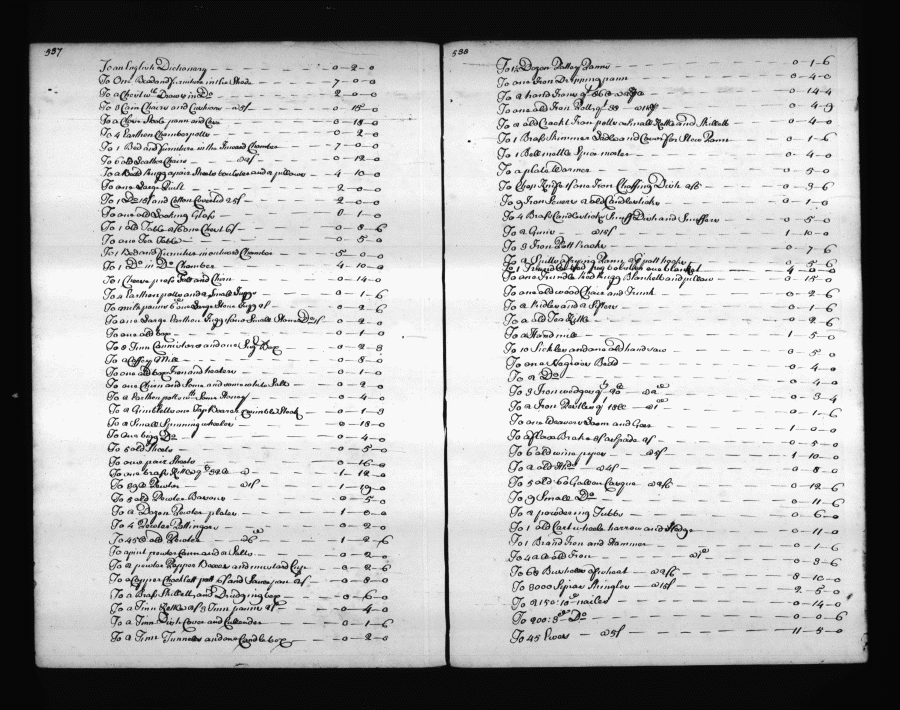 537
To an English Dictionary 0-2-0
To One Bead and furniture in the Shade 7-0-0
To a Chest wth Draws in Do 2-0-0
To 8 Cain Chairs and Cushions 0-15-0
To a Close Stoole pann and Case 0-18-0
To 4 Earthen Chamber potts 0-2-0
To 1 Bed and furniture in the Inward Chamber 7-0-0
To 6 old Leather Chairs 0-12-0
To a Bead Rugg apair Sheets boulster and a pillows 4-10-0
To one Large Quilt 2-0-0
To 1 Do and Cotton Coverled 2-0-0
To one old Looking Glass 0-1-0
To 1 old Table and one Chest 0-8-6
To one Tea Table 0-5-0
To 1 Bed and furniture in outward Chamber 5-0-0
To 1 Do in Do Chamber 4-10-0
To 1 Cheese press and Churn 0-14-0
To 2 Earthen potts and 2 Small Juggs 0-1-6
To milk panns one Large Stone Jugg 0-2-6
To one Large Earthen Jugg and one Small Stone Do 0-2-0
To one old box 0-1-0
To 6 Tinn Cannisters and one Box 0-2-3
To a Coffey Mill 0-8-0
To one old box Iron and heaters 0-1-0
To one Churn and Some white Salt 0-2-0
To a Earthen pott wth Some Honey 0-4-0
To 2 Gimbletts one Tap Boarer 0-1-3
To a Small Spinning wheele 0-18-0
To One bigg Do 0-4-0
To 5 old Sheets 0-5-0
To one pair Sheets 0-16-0
To one brass Kittle 1-12-0
To Pewter 1-19-0
To 5 old Pewter Basons 0-5-0
To a Dozen Pewter plates 1-0-0
To 4 Pewter Pottingers 0-2-0
To 45 old Pewter 1-2-6
To a pint pewter Cann and a Salts 0-2-0
To a pewter Pepper Boxes and mustard Cup 0-2-6
To a Copper Chocklett pott and Sauce pan 0-8-0
To a Brass Skillett and Drudging box 0-6-0
To a Tinn Kettle 3 Tinn panns 0-4-0
To a Tinn Dish Cover and Cullender 0-1-6
To a Tinn Tunnels and one Candle box 0-2-0
538
To ½ Dozen Pattey Panns 0-1-6
To one Iron Dripping pann 0-4-0
To a hand Irons 0-14-4
To one old Iron Pott 0-4-9
To 2 old Crackt Iron potts a Small Kettle and Skillett 0-4-0
To 1 Brass Skimmer Ladle and Cover for Stew Pann 0-1-6
To 1 Bell mettle Spice morter 0-4-0
To a plate Warmer 0-5-0
To Chop Knife and one Iron Chaffing Dish 0-3-6
To 9 Iron Scures 2 old Candlesticks 0-1-0
To 4 Brass Candlesticks Snuff Dish and Snuffers 0-5-0
To 2 Guns 1-10-0
To 3 Iron Pott Racks 0-7-6
To 2 Spitts a frying Pann 2 pott hooks 0-5-6
To 1 bed rug bolster one blanket 4-0-0
To one Trundle bed Rugg Blankett and pillow 0-15-0
To one old wood Chair and Trunk 0-2-6
To a Ridles and a Sifter 0-1-6
To a old Tea Kittle 0-2-6
To a Hand mill 1-5-0
To 10 Sickles and one old hand saw 0-5-0
To one Negroes Bead 0-4-0
To a Do 0-4-0
To 3 Iron wedges 0-3-4
To a Iron Pestle 0-1-6
To one Weavers Loom and Gear 1-0-0
To a flax Brake and a Spade 0-5-0
To 6 old wine pipes 1-10-0
To 2 old 0-8-0
To 5 old 60 Gallon Casque 0-12-6
To 9 Small Do 0-11-6
To 2 powdering Tubbs 0-6-0
To 1 old Cart wheels harrow and Sledge 0-11-0
To 1 Brand Iron and Hammer 0-1-6
To 42 old Iron 0-3-6
To 68 Bushels of wheat 8-10-0
To 3000 Siprus Shingles 2-5-0
To 2150:10d nailes 0-14-0
To 200:8d Do 0-0-6
To 45 Ewes 11-5-0